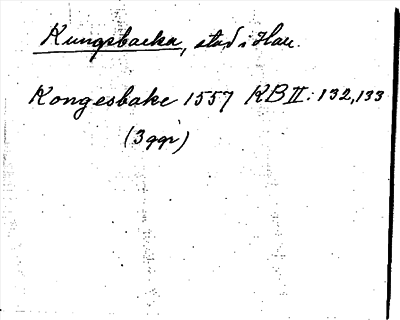 Kungsbacka, stad i Hall.
Kongesbake 1557 KB II: 132, 133
(3 ggr)